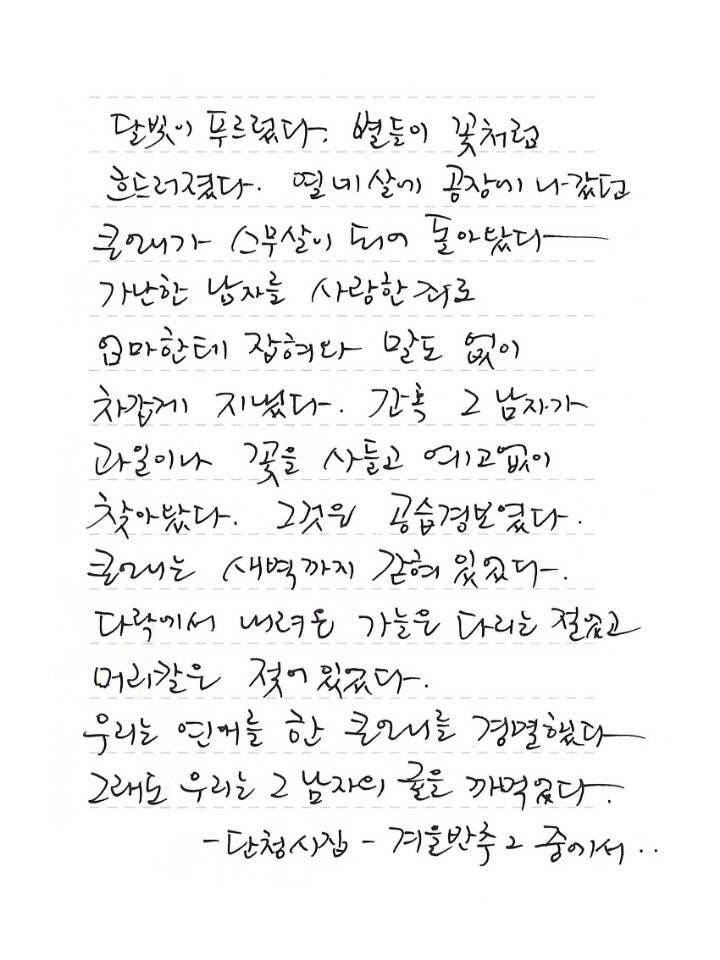 달빛이 푸르렀다. 별들이 꽃처럼
흐드러졌다. 열네살에 공장에 나갔던
큰애가 스무살이 되어 돌아왔다
가난한 남자를 사랑한 죄로
엄마한테 잡혀와 말도 없이
차갑게 지냈다. 간혹 그 남자가
과일이나 꽃을 사들고 예고없이
찾아왔다. 그것은 공습경보였다.
큰애는 새벽까지 갇혀 있었다.
다락에서 내려온 가늘은 다리는 절었고
머리칼은 젖어있었다.
우리는 연애를 한 큰언니를 경멸했다
그래도 우리는 그 남자의 귤을 까먹었다.
-단청시집 - 겨울반추 2 중에서..